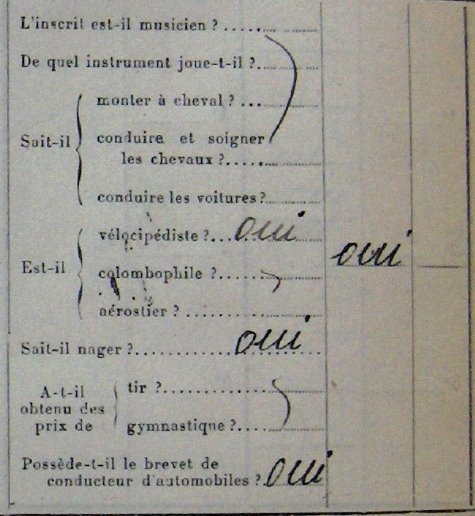 L'inscrit est-il musicien ?.....
De quel instrument joue-t-il ?.
Sait-il
monter à cheval ? ...
conduire et soigner
les chevaux ?.....
conduire les voitures ?
Est-il
vélocipédiste ?... oui
oui
colombophile ?......
aérostier ? ..........
Sait-il nager ?.......... oui
A-t-il
obtenu des
prix de
tir ?............
gymnastique ?....
Possède-t-il le brevet de
conducteur d'automobiles ? oui